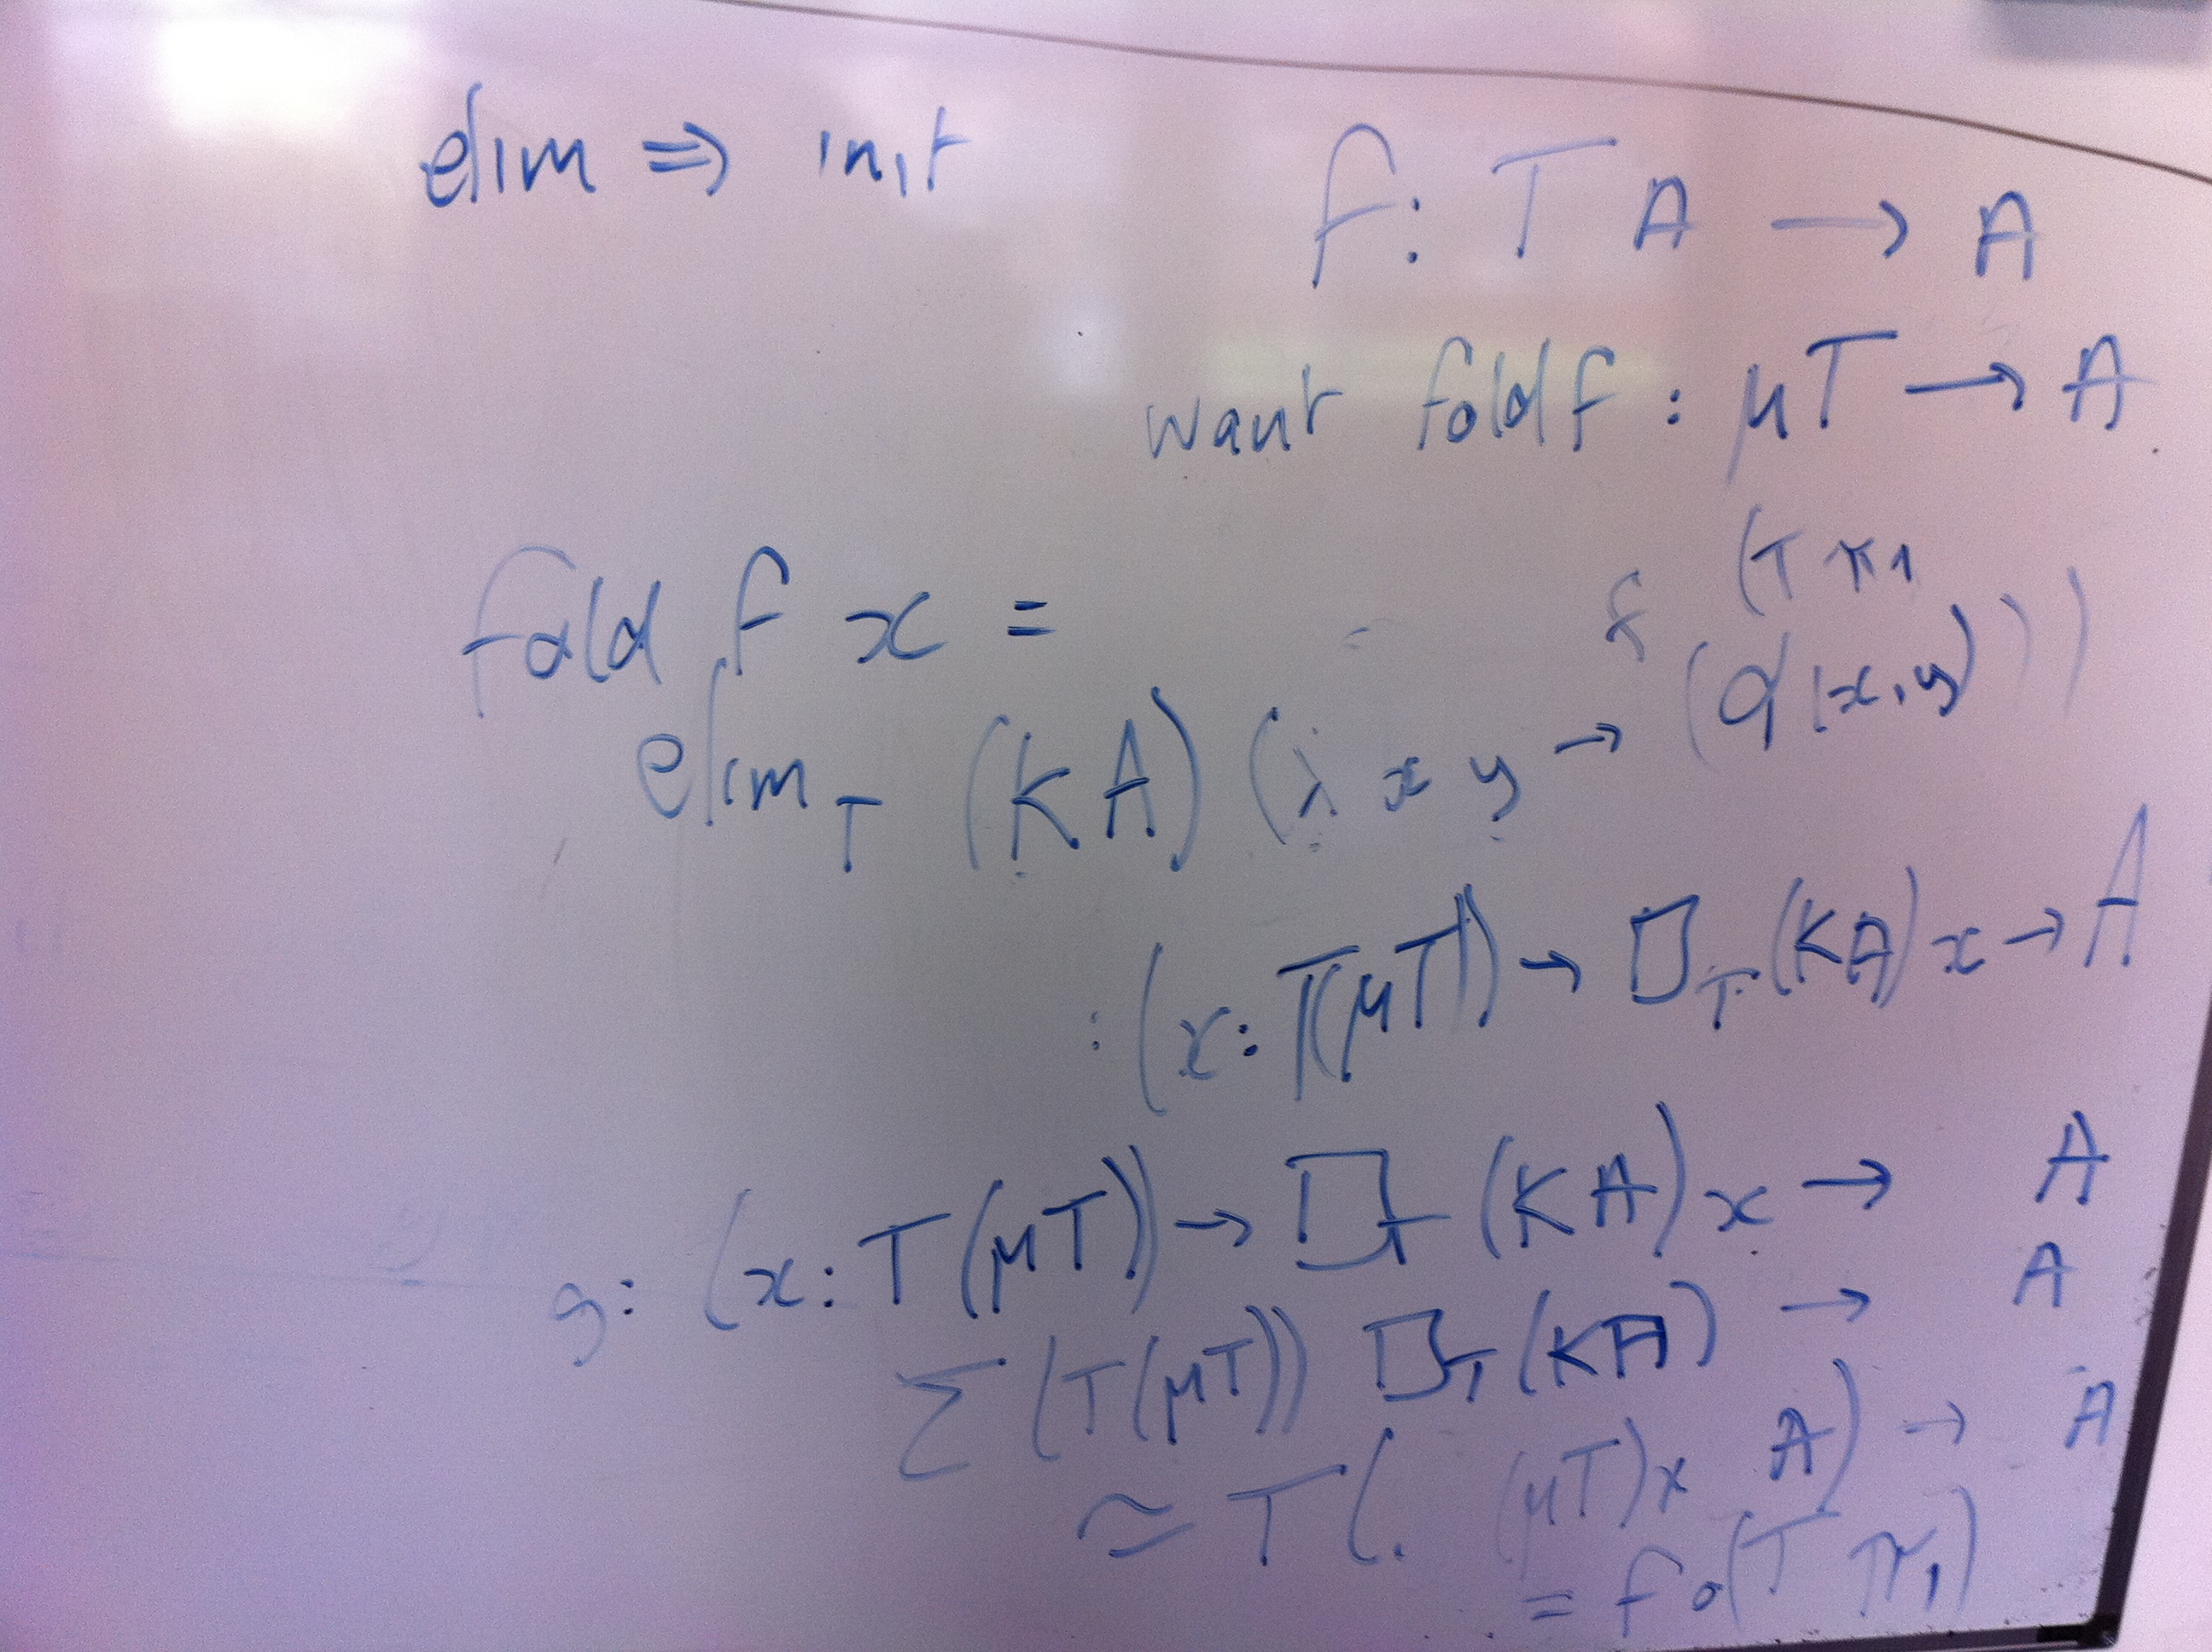 elim ⇒ init
f: T A → A
want fold f : μT → A
fold f x =
f (T π1
elim_T (K A) (λ x y → (φ (x, y))))
: (x: T(μT)) → □_T (KA) x → A
g: (x: T(μT)) → □_T (KA) x → A
Σ (T(μT)) □_T (KA) → A
≃ T( (μT) x A) → A
= f o (T π1)